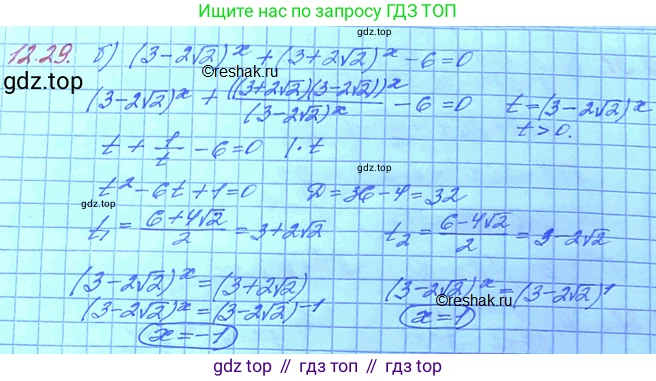 Ищите нас по запросу ГДЗ ТОП
12.29. б) (3-2√2)^x + (3+2√2)^x - 6 = 0
gdz.top
©reshak.ru
(3-2√2)^x + ((3+2√2)(3-2√2))^x / (3-2√2)^x - 6 = 0 t = (3-2√2)^x
t > 0.
t + 1/t - 6 = 0 | · t
gdz.top
t² - 6t + 1 = 0 D = 36 - 4 = 32
t₁ = (6+4√2)/2 = 3+2√2 t₂ = (6-4√2)/2 = 3-2√2
(3-2√2)^x = (3+2√2) (3-2√2)^x = (3-2√2)^1
©reshak.ru
(3-2√2)^x = (3-2√2)^-1 x = 1
x = -1
gdz.top // gdz.top // gdz.top